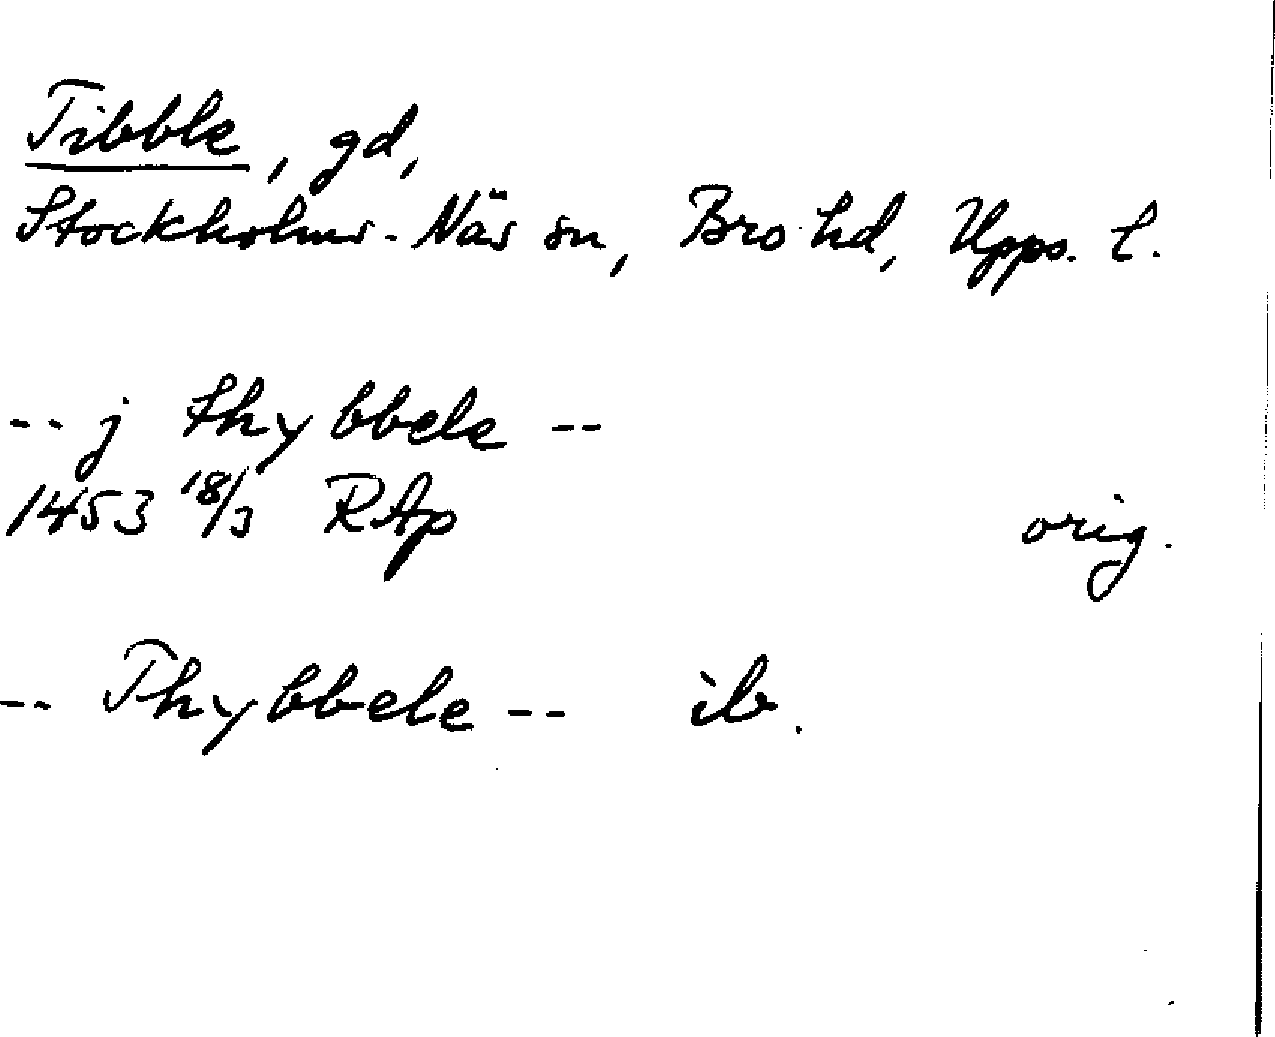 Tibble, gd,
Stockholms-Näs sn, Bro hd, Upps. l.
-- j thybbele --
1453 18/3 RAp orig.
-- Thybbele -- ib.